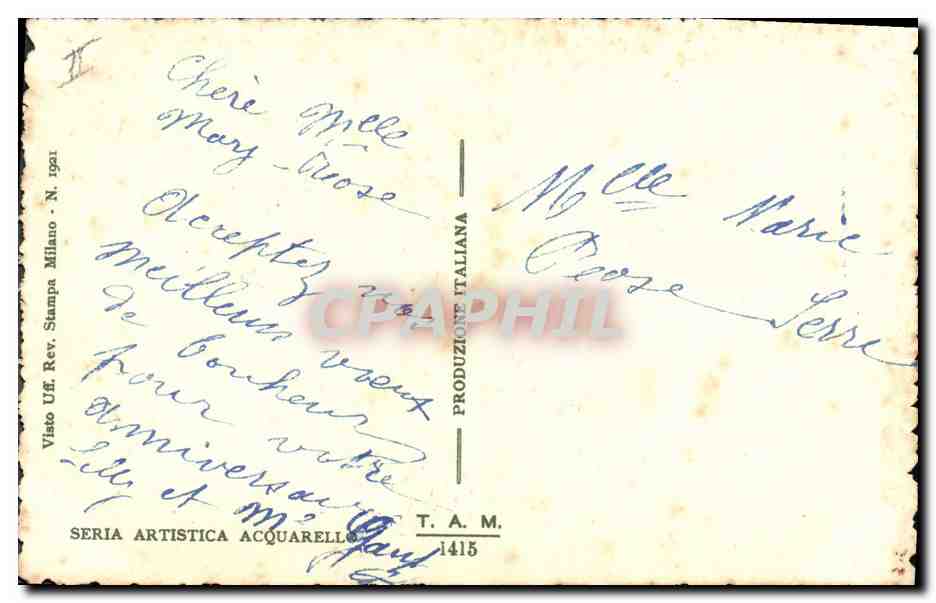 II
Visto Uff. Rev. Stampa Milano - N. 1921
Chère Mlle
Mary-Rose
Acceptez nos
meilleurs vœux
de bonheur
pour votre
anniversaire
Lilly et Mr
SERIA ARTISTICA ACQUARELLO
PRODUZIONE ITALIANA
CPAPHIL
T. A. M.
1415
Mlle Marie
Rose Serre